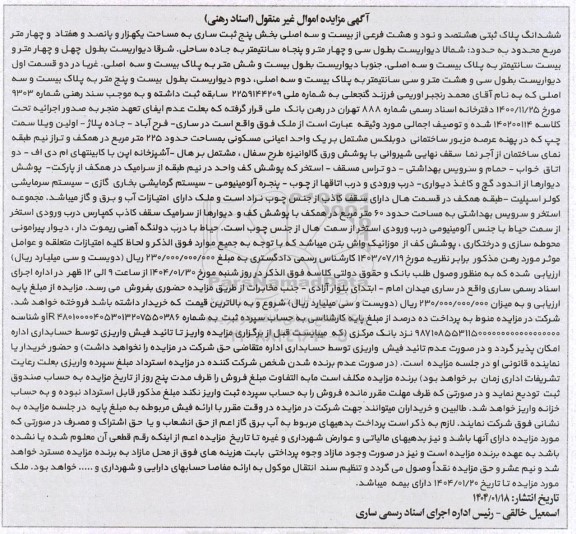 آگهی مزایده اموال غیر منقول (اسناد رهنی)
ششدانگ پلاک ثبتی هشتصد و نود و هشت فرعی از بیست و سه اصلی بخش پنج ثبت ساری به مساحت یکهزار و پانصد و هفتاد و چهار متر
مربع محدود به حدود: شمالا دیواریست بطول سی و چهار متر و پنجاه سانتیمتر به جاده ساحلی. شرقا دیواریست بطول چهل و چهار متر و
بیست سانتیمتر به پلاک بیست و سه اصلی. جنوبا دیواریست بطول بیست و شش متر به پلاک بیست و سه اصلی. غربا در دو قسمت اول
دیواریست بطول سی و هشت متر و سی سانتیمتر به پلاک بیست و سه اصلی، دوم دیواریست بطول بیست و پنج متر به پلاک بیست و سه
اصلی که به نام آقای محمد رنجبر اوریمی فرزند گنجعلی به شماره ملی ۲۲۵۹۱۴۴۲۰۹ سابقه ثبت داشته و به موجب سند رهنی شماره ۹۳۰۳
مورخ ۱۴۰۰/۱۱/۲۵ دفترخانه اسناد رسمی شماره ۸۸۸ تهران در رهن بانک ملی قرار گرفته که بعلت عدم ایفای تعهد منجر به صدور اجرائیه تحت
کلاسه ۱۴۰۲۰۰۱۱۴ شده و توصیف اجمالی مورد وثیقه عبارت است از ملک فوق واقع است در ساری- فرح آباد - جاده پلاژ - اولین ویلا سمت
چپ که در پهنه عرصه مزبور ساختمانی دوبلکس مشتمل بر یک واحد اعیانی مسکونی بمساحت حدود ۲۲۵ متر مربع در همکف و تراز نیم طبقه
نمای ساختمان از آجر نما سقف نهایی شیروانی با پوشش ورق گالوانیزه طرح سفال ، مشتمل بر هال -آشپزخانه اپن با کابینتهای ام دی اف - دو
اتاق خواب - حمام و سرویس بهداشتی - دو تراس مسقف - استخر که پوشش کف واحد در نیم طبقه از سرامیک در همکف از پارکت- پوشش
دیوارها از اندود گچ و کاغذ دیواری- درب ورودی و درب اتاقها از چوب - پنجره آلومینیومی - سیستم گرمایشی بخاری گازی - سیستم سرمایشی
کولر اسپلیت - طبقه همکف در قسمت هال دارای سقف کاذب از جنس چوب نراد است و ملک دارای امتیازات آب و برق و گاز میباشد. مجموعه
استخر و سرویس بهداشتی به مساحت حدود ۶۰ متر مربع در همکف با پوشش کف و دیوارها از سرامیک سقف کاذب کمپارس درب ورودی استخر
از سمت حیاط با جنس آلومینیومی درب ورودی استخر از سمت هال از جنس چوب است. حیاط با درب دولنگه آهنی ریموت دار ، دیوار پیرامونی
محوطه سازی و درختکاری ، پوشش کف از موزائیک واش بتن میباشد که با توجه به جمیع موارد فوق الذکر و لحاظ کلیه امتیازات متعلقه و عوامل
موثر مورد رهن مذکور برابر نظریه مورخ ۱۴۰۳/۰۷/۱۹ کارشناس رسمی دادگستری به مبلغ ۲۳۰/۰۰۰/۰۰۰/۰۰۰ ریال (دویست و سی میلیارد ریال)
ارزیابی شده که به منظور وصول طلب بانک و حقوق دولتی کلاسه فوق الذکر در روز شنبه مورخ ۱۴۰۴/۰۱/۳۰ از ساعت ۹ الی ۱۲ ظهر در اداره اجرای
اسناد رسمی ساری واقع در ساری میدان امام - ابتدای بلوار آزادی - جنب مخابرات از طریق مزایده حضوری بفروش می رسد. مزایده از مبلغ پایه
ارزیابی و به میزان ۲۳۰/۰۰۰/۰۰۰/۰۰۰ ریال (دویست و سی میلیارد ریال) شروع و به بالاترین قیمت که خریدار داشته باشد فروخته خواهد شد.
شرکت در مزایده منوط به پرداخت ده درصد از مبلغ پایه کارشناسی به حساب سپرده ثبت به شماره
نزد بانک مرکزی (که میبایست قبل از برگزاری مزایده واریز تا تائید فیش واریزی توسط حسابداری اداره
امکان پذیر گردد و در صورت عدم تائید فیش واریزی توسط حسابداری اداره متقاضی حق شرکت در مزایده را نخواهد داشت) و حضور خریدار یا
نماینده قانونی او در جلسه مزایده است. (در صورت عدم برنده شدن شخص شرکت کننده در مزایده استرداد مبلغ سپرده واریزی بعلت رعایت
تشریفات اداری زمان بر خواهد بود) برنده مزایده مکلف است مابه التفاوت مبلغ فروش را ظرف مدت پنج روز از تاریخ مزایده به حساب صندوق
ثبت تودیع نماید و در صورتی که ظرف مهلت مقرر مانده فروش را به حساب سپرده ثبت واریز نکند مبلغ مذکور قابل استرداد نبوده و به حساب
خزانه واریز خواهد شد. طالبین و خریداران میتوانند جهت شرکت در مزایده در وقت مقرر با ارائه فیش مربوطه به مبلغ پایه در جلسه مزایده به
نشانی فوق شرکت نمایند. لازم به ذکر است پرداخت بدهیهای مربوط به آب برق گاز اعم از حق انشعاب و یا حق اشتراک و مصرف در صورتی که
مورد مزایده دارای آنها باشد و نیز بدهیهای مالیاتی و عوارض شهرداری و غیره تا تاریخ مزایده اعم از اینکه رقم قطعی آن معلوم شده یا نشده
باشد به عهده برنده مزایده است و نیز در صورت وجود مازاد وجوه پرداختی بابت هزینه های فوق از محل مازاد به برنده مزایده مسترد خواهد
شد و نیم عشر و حق مزایده نقداً وصول می گردد و تنظیم سند انتقال موکول به ارائه مفاصا حسابهای دارایی و شهرداری و ..... خواهد بود. ملک
مورد مزایده تا تاریخ ۱۴۰۴/۰۱/۲۰ دارای بیمه میباشد.
تاریخ انتشار: ۱۴۰۴/۰۱/۱۸
اسمعیل خالقی - رئیس اداره اجرای اسناد رسمی ساری